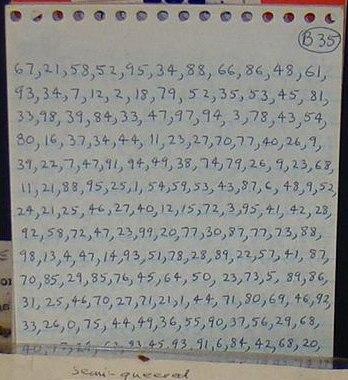 B35
67,21,58,52,95,34,88,66,86,48,61,
93,34,7,12,2,18,79,52,35,53,45,81,
33,98,39,84,33,47,97,94,3,78,43,54,
80,16,37,34,44,11,23,27,70,77,40,26,9,
39,22,7,47,91,94,49,38,74,79,26,9,23,68,
11,21,88,95,25,1,54,59,53,43,87,6,48,9,52,
24,21,25,46,27,40,12,15,72,3,95,41,42,28,
92,58,72,47,23,99,20,77,30,87,77,73,88,
98,13,4,47,14,93,51,78,28,89,22,57,41,87,
70,85,29,85,76,45,64,50,23,73,5,89,86,
31,25,46,70,27,71,21,1,44,71,80,69,46,92,
33,26,0,75,44,49,36,55,90,37,56,29,68,
93,45,93,91,6,84,42,68,20,
semi-queered